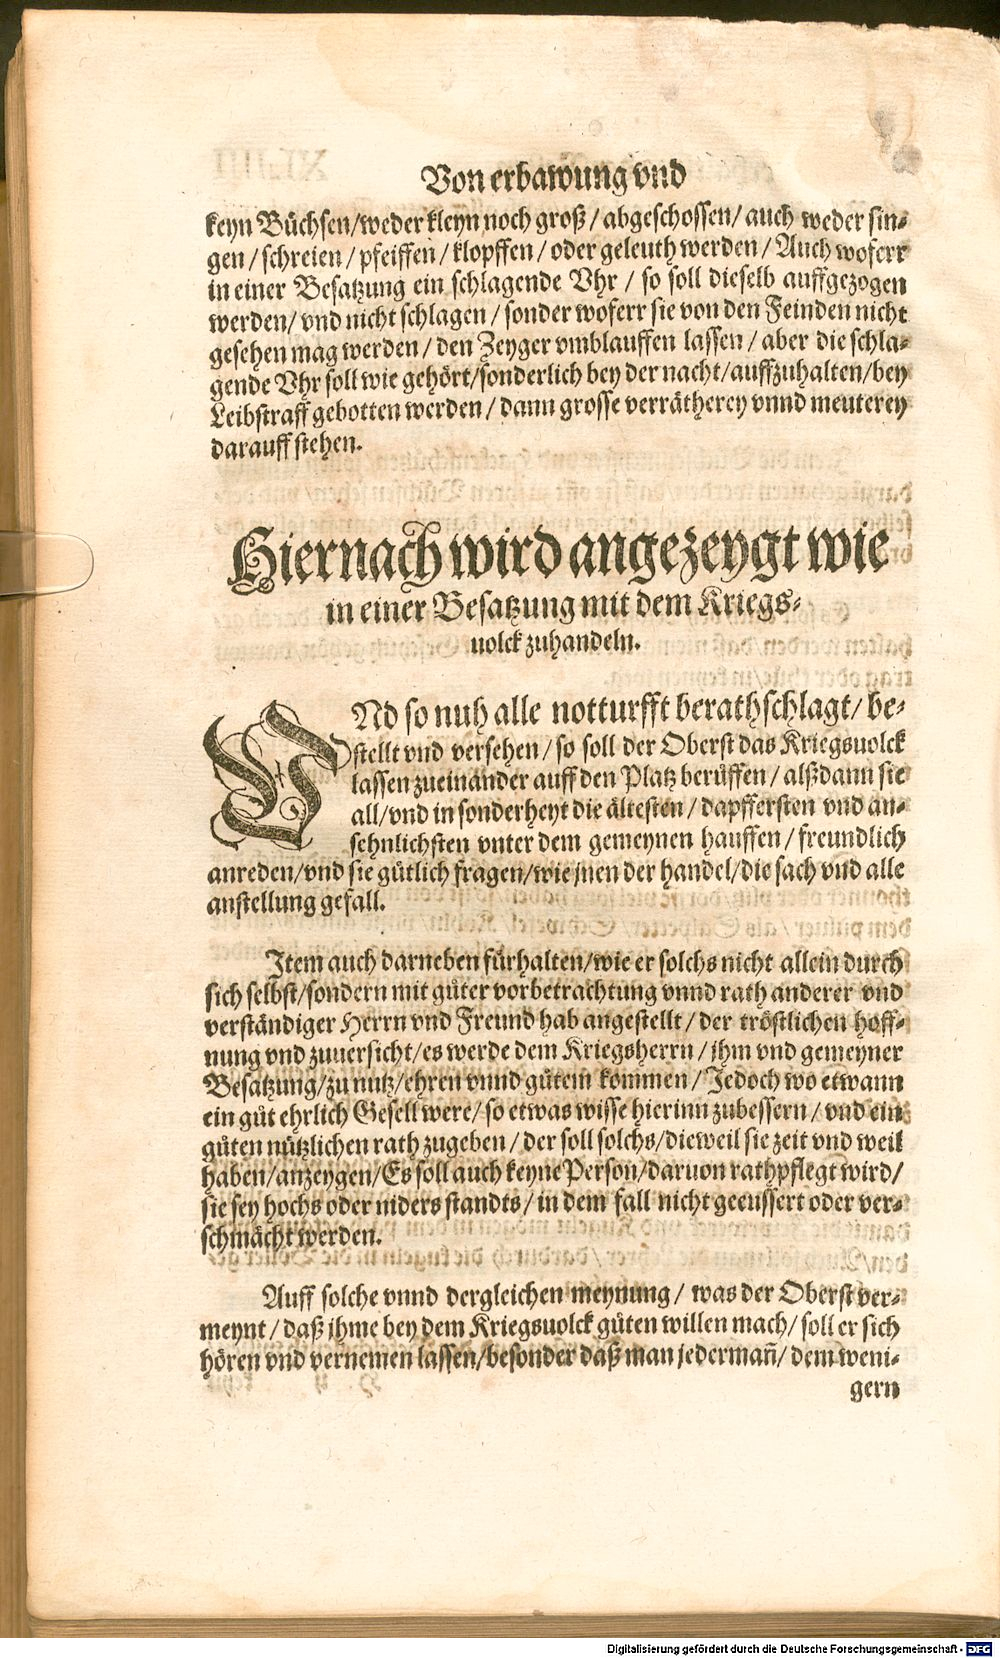 Von erbawung vnd
keyn Büchsen/weder kleyn noch groß/abgeschossen/auch weder sin-
gen/schreien/pfeiffen/klopffen/oder geleuth werden/Auch woferr
in einer Besatzung ein schlagende Vhr/so soll dieselb auffgezogen
werden/vnd nicht schlagen/sonder woferr sie von den Feinden nicht
gesehen mag werden/den Zeyger vmblauffen lassen/aber die schla-
gende Vhr soll wie gehört/sonderlich bey der nacht/auffzuhalten/bey
Leibstraff gebotten werden/dann grosse verrätherey vnnd meuterey
darauff stehen.
Hiernach wird angezeygt wie
in einer Besatzung mit dem Kriegs-
uolck zuhandeln.
VNd so nuh alle notturfft berathschlagt/be-
stellt vnd versehen/so soll der Oberst das Kriegsuolck
lassen zueinander auff den Platz berůffen/alßdann sie
all/vnd in sonderheyt die ältesten/dapffersten vnd an-
sehnlichsten vnter dem gemeynen hauffen/freundlich
anreden/vnd sie gůtlich fragen/wie jnen der handel/die sach vnd alle
anstellung gefall.
Item auch darneben fürhalten/wie er solchs nicht allein durch
sich selbst/sondern mit gůter vorbetrachtung vnnd rath anderer vnd
verständiger Herrn vnd Freund hab angestellt/der tröstlichen hoff-
nung vnd zuuersicht/es werde dem Kriegsherrn/jhm vnd gemeyner
Besatzung/zu nutz/ehren vnnd gůtem kommen/Jedoch wo etwann
ein gůt ehrlich Gesell were/so etwas wisse hierinn zubessern/vnd ein
gůten nützlichen rath zugeben/der soll solchs/dieweil sie zeit vnd weil
haben/anzeygen/Es soll auch keyne Person/daruon rath pflegt wird/
sie sey hochs oder niders standts/in dem fall nicht geeussert oder ver-
schmächt werden.
Auff solche vnnd dergleichen meynung/was der Oberst ver-
meynt/daß jhme bey dem Kriegsuolck gůten willen mach/soll er sich
hören vnd vernemen lassen/besonder daß man jederman̄/dem weni-
gern
Digitalisierung gefördert durch die Deutsche Forschungsgemeinschaft - DFG